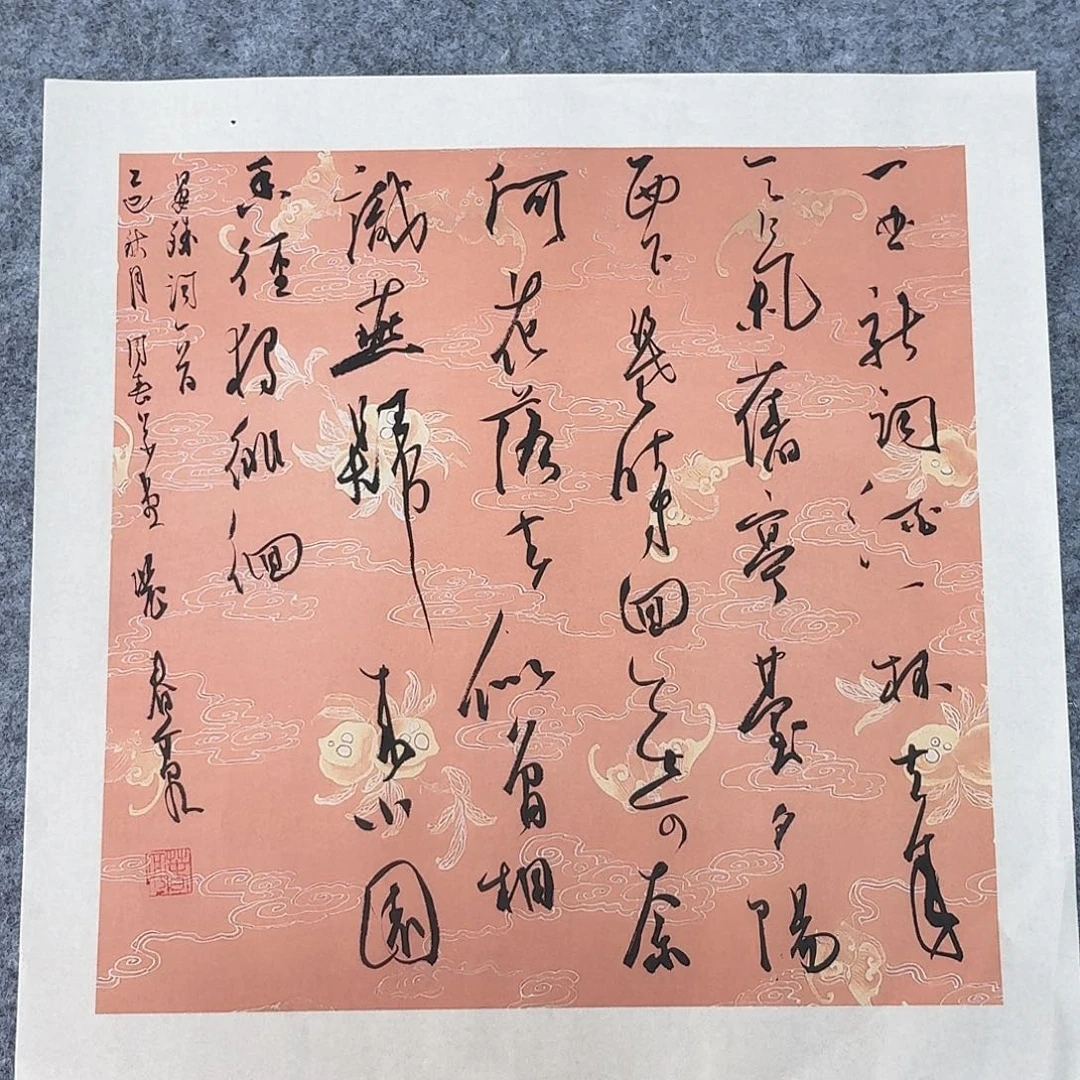 一曲新詞酒一杯去年
天氣舊亭臺夕陽
西下幾時回無可奈
何花落去似曾相
識燕歸來小園
香徑獨徘徊
晏殊詞一首
乙巳秋月